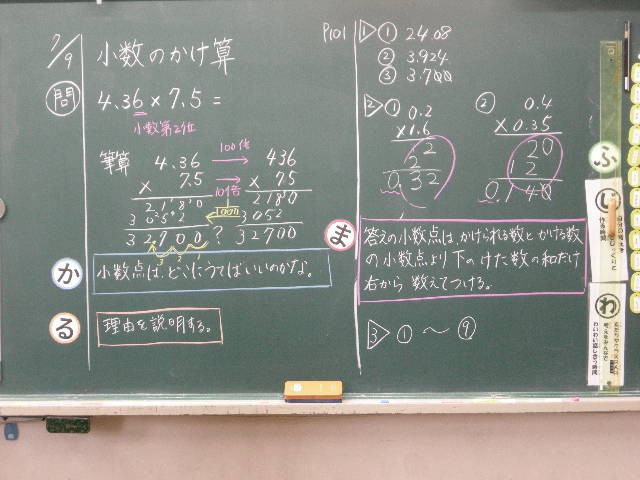 7/9
小数のかけ算
問
4.36×7.5=
小数第2位
筆算
4.36
× 7.5
2180
3052
32.700?
100倍
10倍
1000
436
× 75
2180
3052
32700
3 2 1
か
小数点は、どこにうてばいいのかな。
る
理由を説明する。
P101
1 ① 24.08
② 3.924
③ 3.700
2 ① 0.2
×1.6
12
2
0.32
② 0.4
×0.35
20
12
0.140
ま
答えの小数点は、かけられる数とかける数
の小数点より下のけた数の和だけ
右から数えてつける。
3 ①〜⑨
ふ
じ
わ